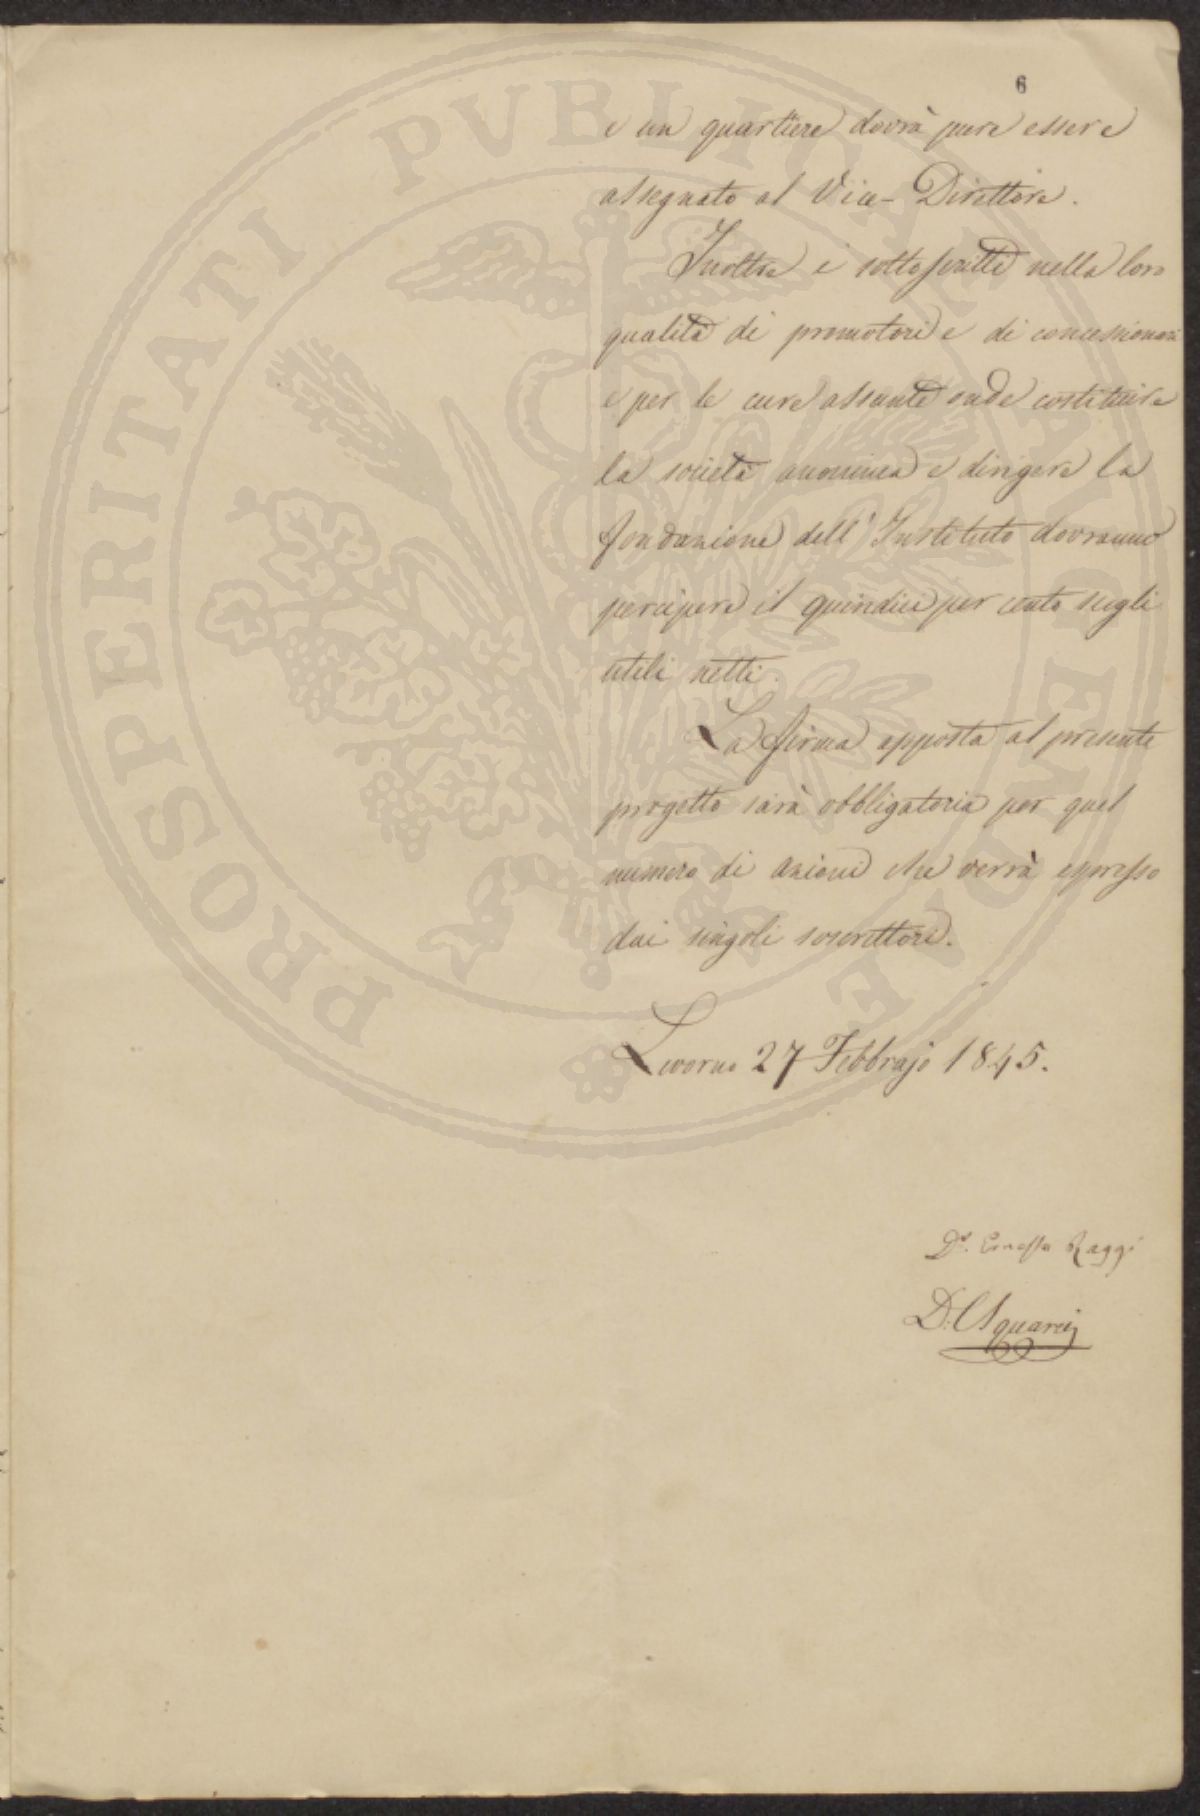 6
e un quartiere dovrà pure essere
assegnato al Vice-Direttore.
Inoltre i sottoscritti nella loro
qualità di promotori e di concessionari
e per le cure assunte onde costituire
la società anonima e dirigere la
fondazione dell'Instituto dovranno
percipere il quindici per cento sugli
utili netti.
La firma apposta al presente
progetto sarà obbligatoria per quel
numero di azioni che verrà espresso
dai singoli soscrittori.
Livorno 27 Febbrajo 1845.
Dr. Ernesto Raggi
D. Squarci
PROSPERITATI PVBLICAE AVGENDAE